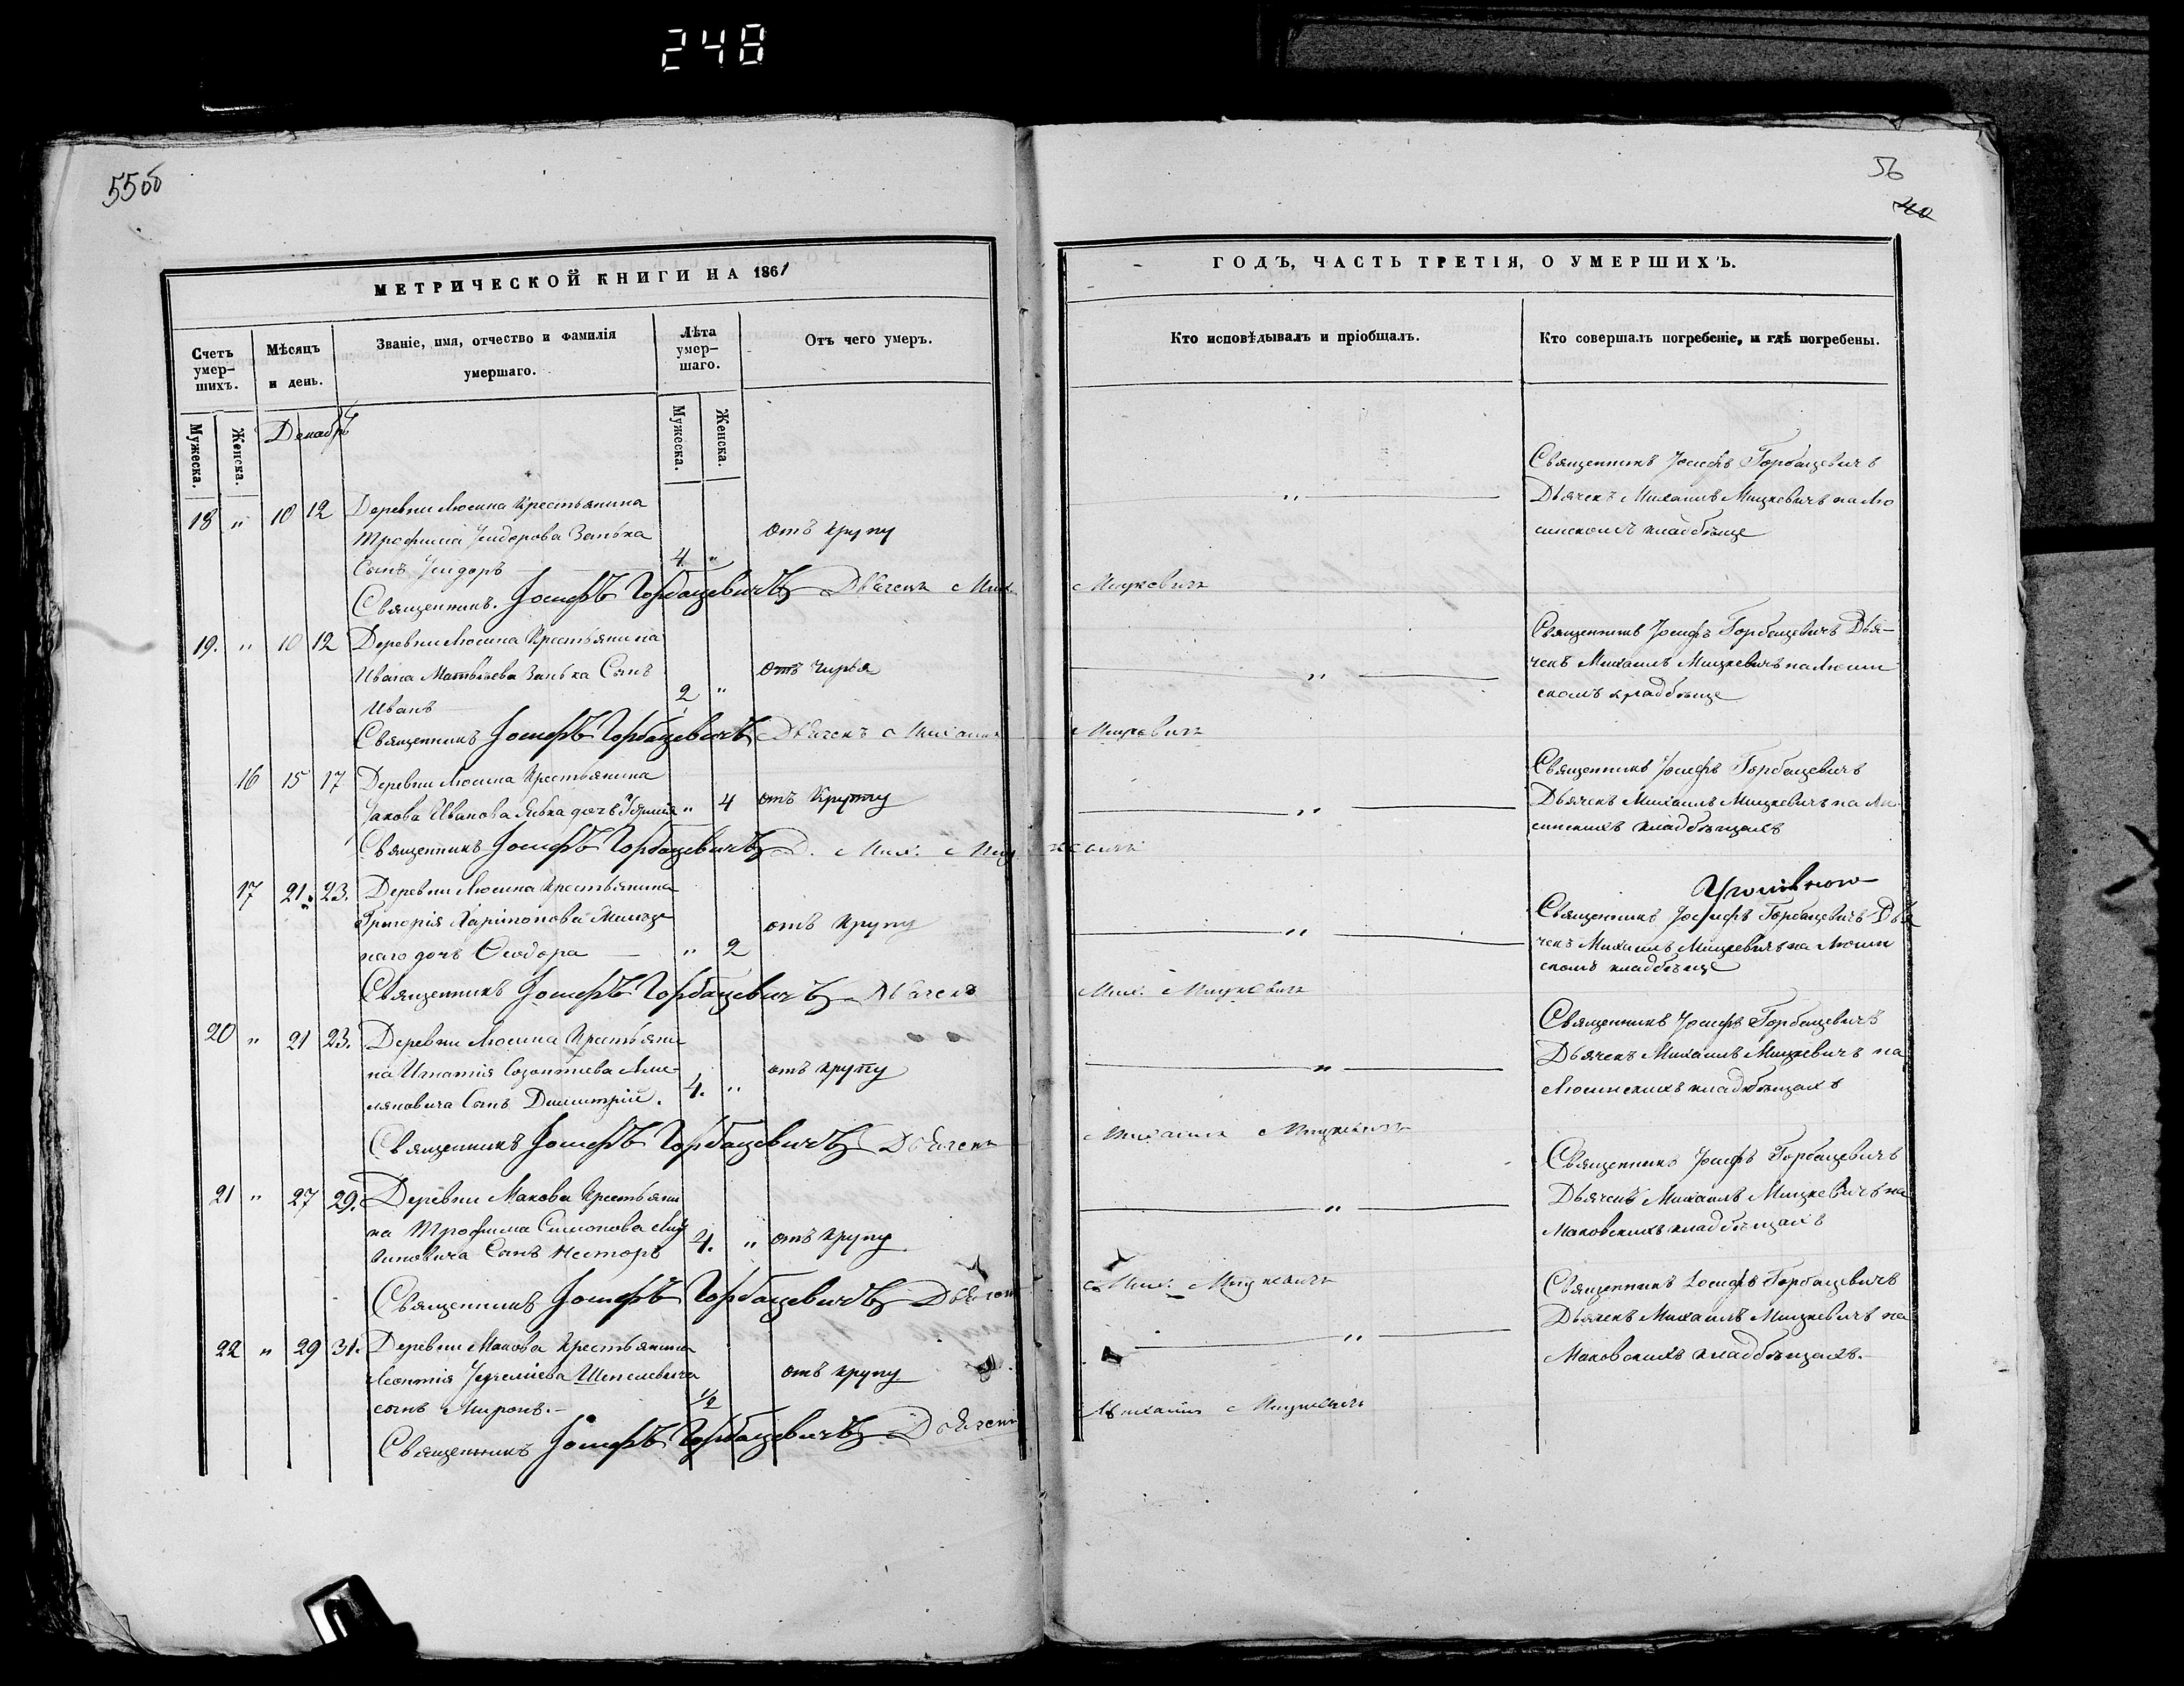 248
55об
56
40
МЕТРИЧЕСКОЙ КНИГИ НА 1861
ГОДЪ, ЧАСТЬ ТРЕТІЯ, О УМЕРШИХЪ.
Счетъ умер-шихъ.
Мѣсяцъ и день.
Званіе, имя, отчество и фамилія умершаго.
Лѣта умер-шаго.
Отъ чего умеръ.
Кто исповѣдывалъ и пріобщалъ.
Кто совершалъ погребеніе, и гдѣ погребены.
Мужеска.
Женска.
Декабрь
Мужеска.
Женска.
18 " 10 12 Деревни Люсина Крестьянина
Трофима Исидорова Занька
Сынъ Исидоръ 4 " отъ крупу
"
Священникъ Іосифъ Горбацевичъ
Дьячекъ Михаилъ Мицкевичъ на Лю
синскомъ кладбѣще
Священникъ. Іосифъ Горбацевичъ Дьячекъ Мих. Мицкевичъ
19. " 10 12 Деревни Люсина Крестьянина
Ивана Матвѣева Занька Сынъ
Иванъ 2 " отъ чирья
"
Священникъ Іосифъ Горбацевичъ Дья-
чекъ Михаилъ Мицкевичъ на Люсин
скомъ кладбѣще
Священникъ Іосифъ Горбацевичъ Дьячекъ Михаилъ Мицкевичъ
16 15 17 Деревни Люсина Крестьянина
Іакова Иванова дочь " 4 отъ Крупу
"
Священникъ Іосифъ Горбацевичъ
Дьячекъ Михаилъ Мицкевичъ на Лю
синскихъ кладбѣщахъ
Священникъ Іосифъ Горбацевичъ Д. Мих. Мицкевичъ
17 21. 23. Деревни Люсина Крестьянина
Григорія Харитонова
наго дочь Ѳеодора " 2 отъ Крупу
"
Священникъ Іосифъ Горбацевичъ Дья
чекъ Михаилъ Мицкевичъ на Люсин
скомъ кладбѣще
Священникъ Іосифъ Горбацевичъ Дьячекъ Мих. Мицкевичъ
20 " 21 23. Деревни Люсина Крестьяни
на Игнатія Созонтіева Оме
ляновича Сынъ Димитрій. 4. " отъ крупу
"
Священникъ Іосифъ Горбацевичъ
Дьячекъ Михаилъ Мицкевичъ на
Люсинскихъ кладбѣщахъ
Священникъ Іосифъ Горбацевичъ Дьячекъ Михаилъ Мицкевичъ
21 " 27 29. Деревни Макова Крестьяни
на Трофима Симонова
Сынъ Несторъ 4. " отъ крупу
"
Священникъ Іосифъ Горбацевичъ
Дьячекъ Михаилъ Мицкевичъ на
Маковскихъ кладбѣщахъ
Священникъ Іосифъ Горбацевичъ Дьячекъ Мих. Мицкевичъ
22 " 29 31. Деревни Макова Крестьянина
Леонтія Шепелевича
сынъ Миронъ. 1/2 отъ крупу
"
Священникъ Іосифъ Горбацевичъ
Дьячекъ Михаилъ Мицкевичъ на
Маковскихъ кладбѣщахъ.
Священникъ Іосифъ Горбацевичъ Дьячекъ Михаилъ Мицкевичъ